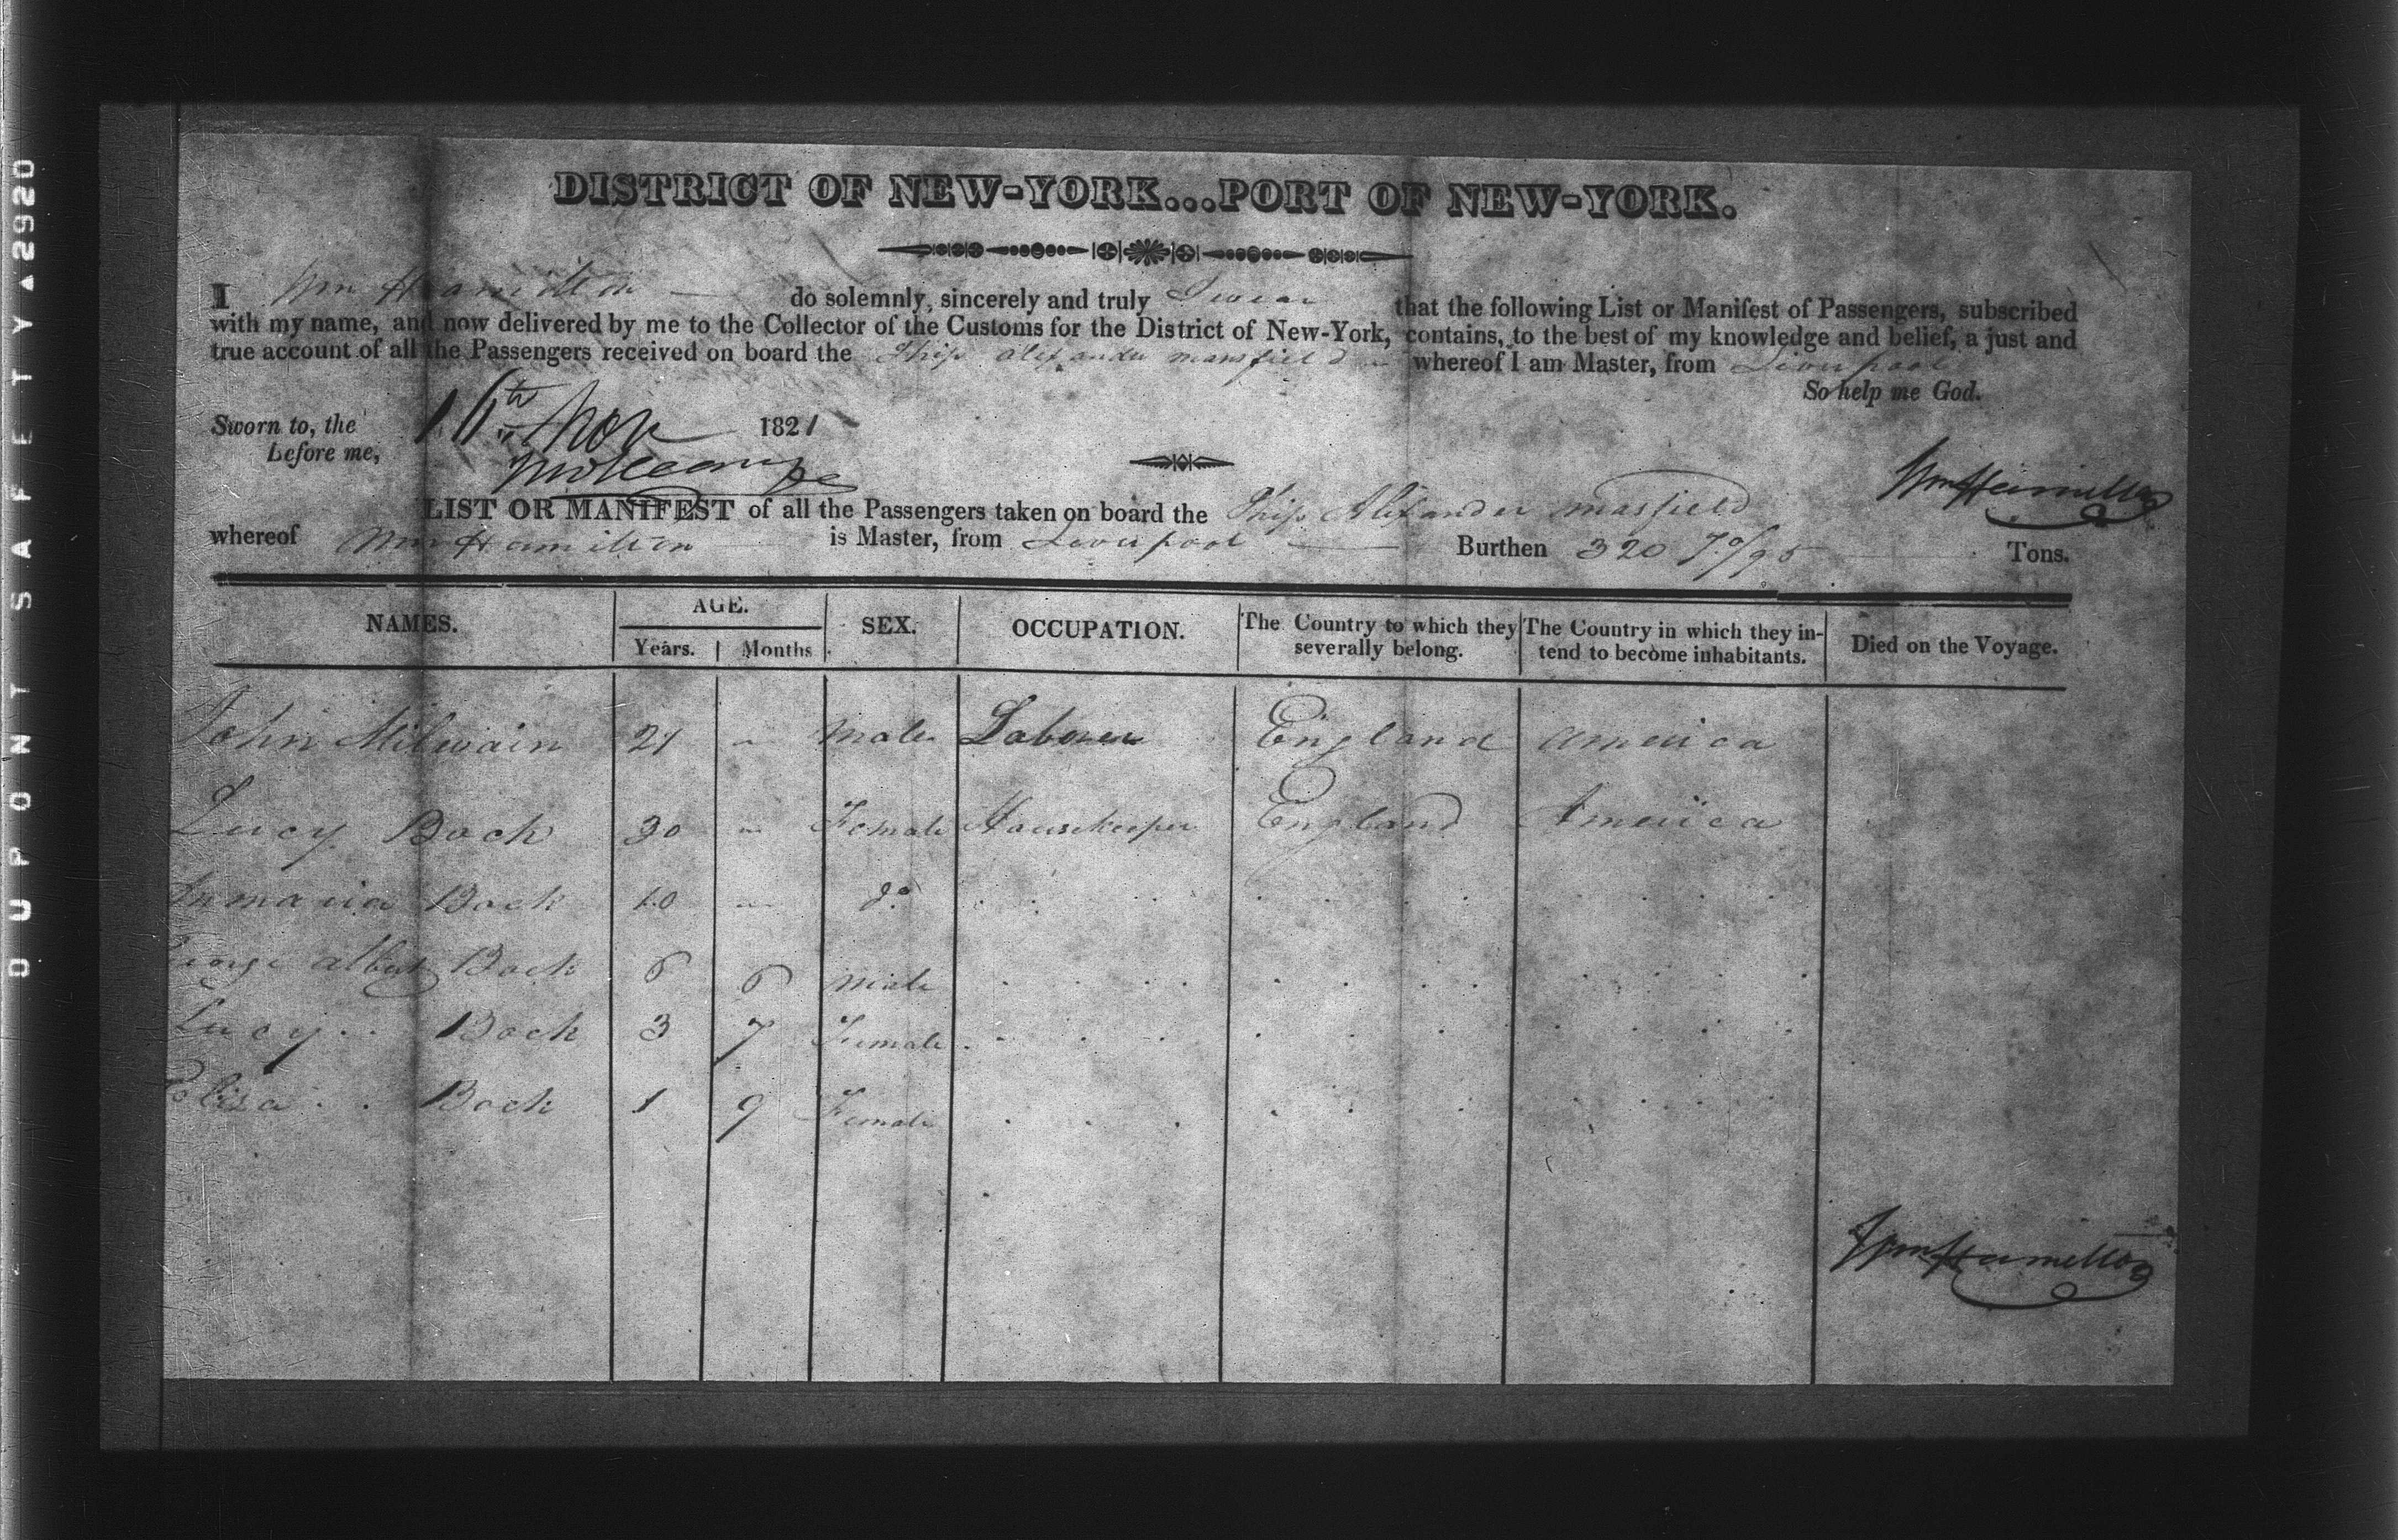 DISTRICT OF NEW-YORK...PORT OF NEW-YORK.
I Wm Hamilton do solemnly, sincerely and truly Swear that the following List or Manifest of Passengers, subscribed
with my name, and now delivered by me to the Collector of the Customs for the District of New-York, contains, to the best of my knowledge and belief, a just and
true account of all the Passengers received on board the Ship Alexander mansfield whereof I am Master, from Liverpool
So help me God.
Sworn to, the 16th Nov 1821
before me,
Wm Hamilton
LIST OR MANIFEST of all the Passengers taken on board the Ship Alexander masfield
whereof Wm Hamilton is Master, from Liverpool Burthen 320 70/95 Tons.
NAMES. AGE. Years. Months. SEX. OCCUPATION. The Country to which they severally belong. The Country in which they intend to become inhabitants. Died on the Voyage.
John Milwain 21 male Laborer England America
Lucy Bock 30 Female Housekeeper England America
Bock 10 do
George albert Bock 6 6 male
Lucy Bock 3 7 Female
Eliza Bock 1 9 Female
Wm Hamilton
DUPONT SAFETY A2920